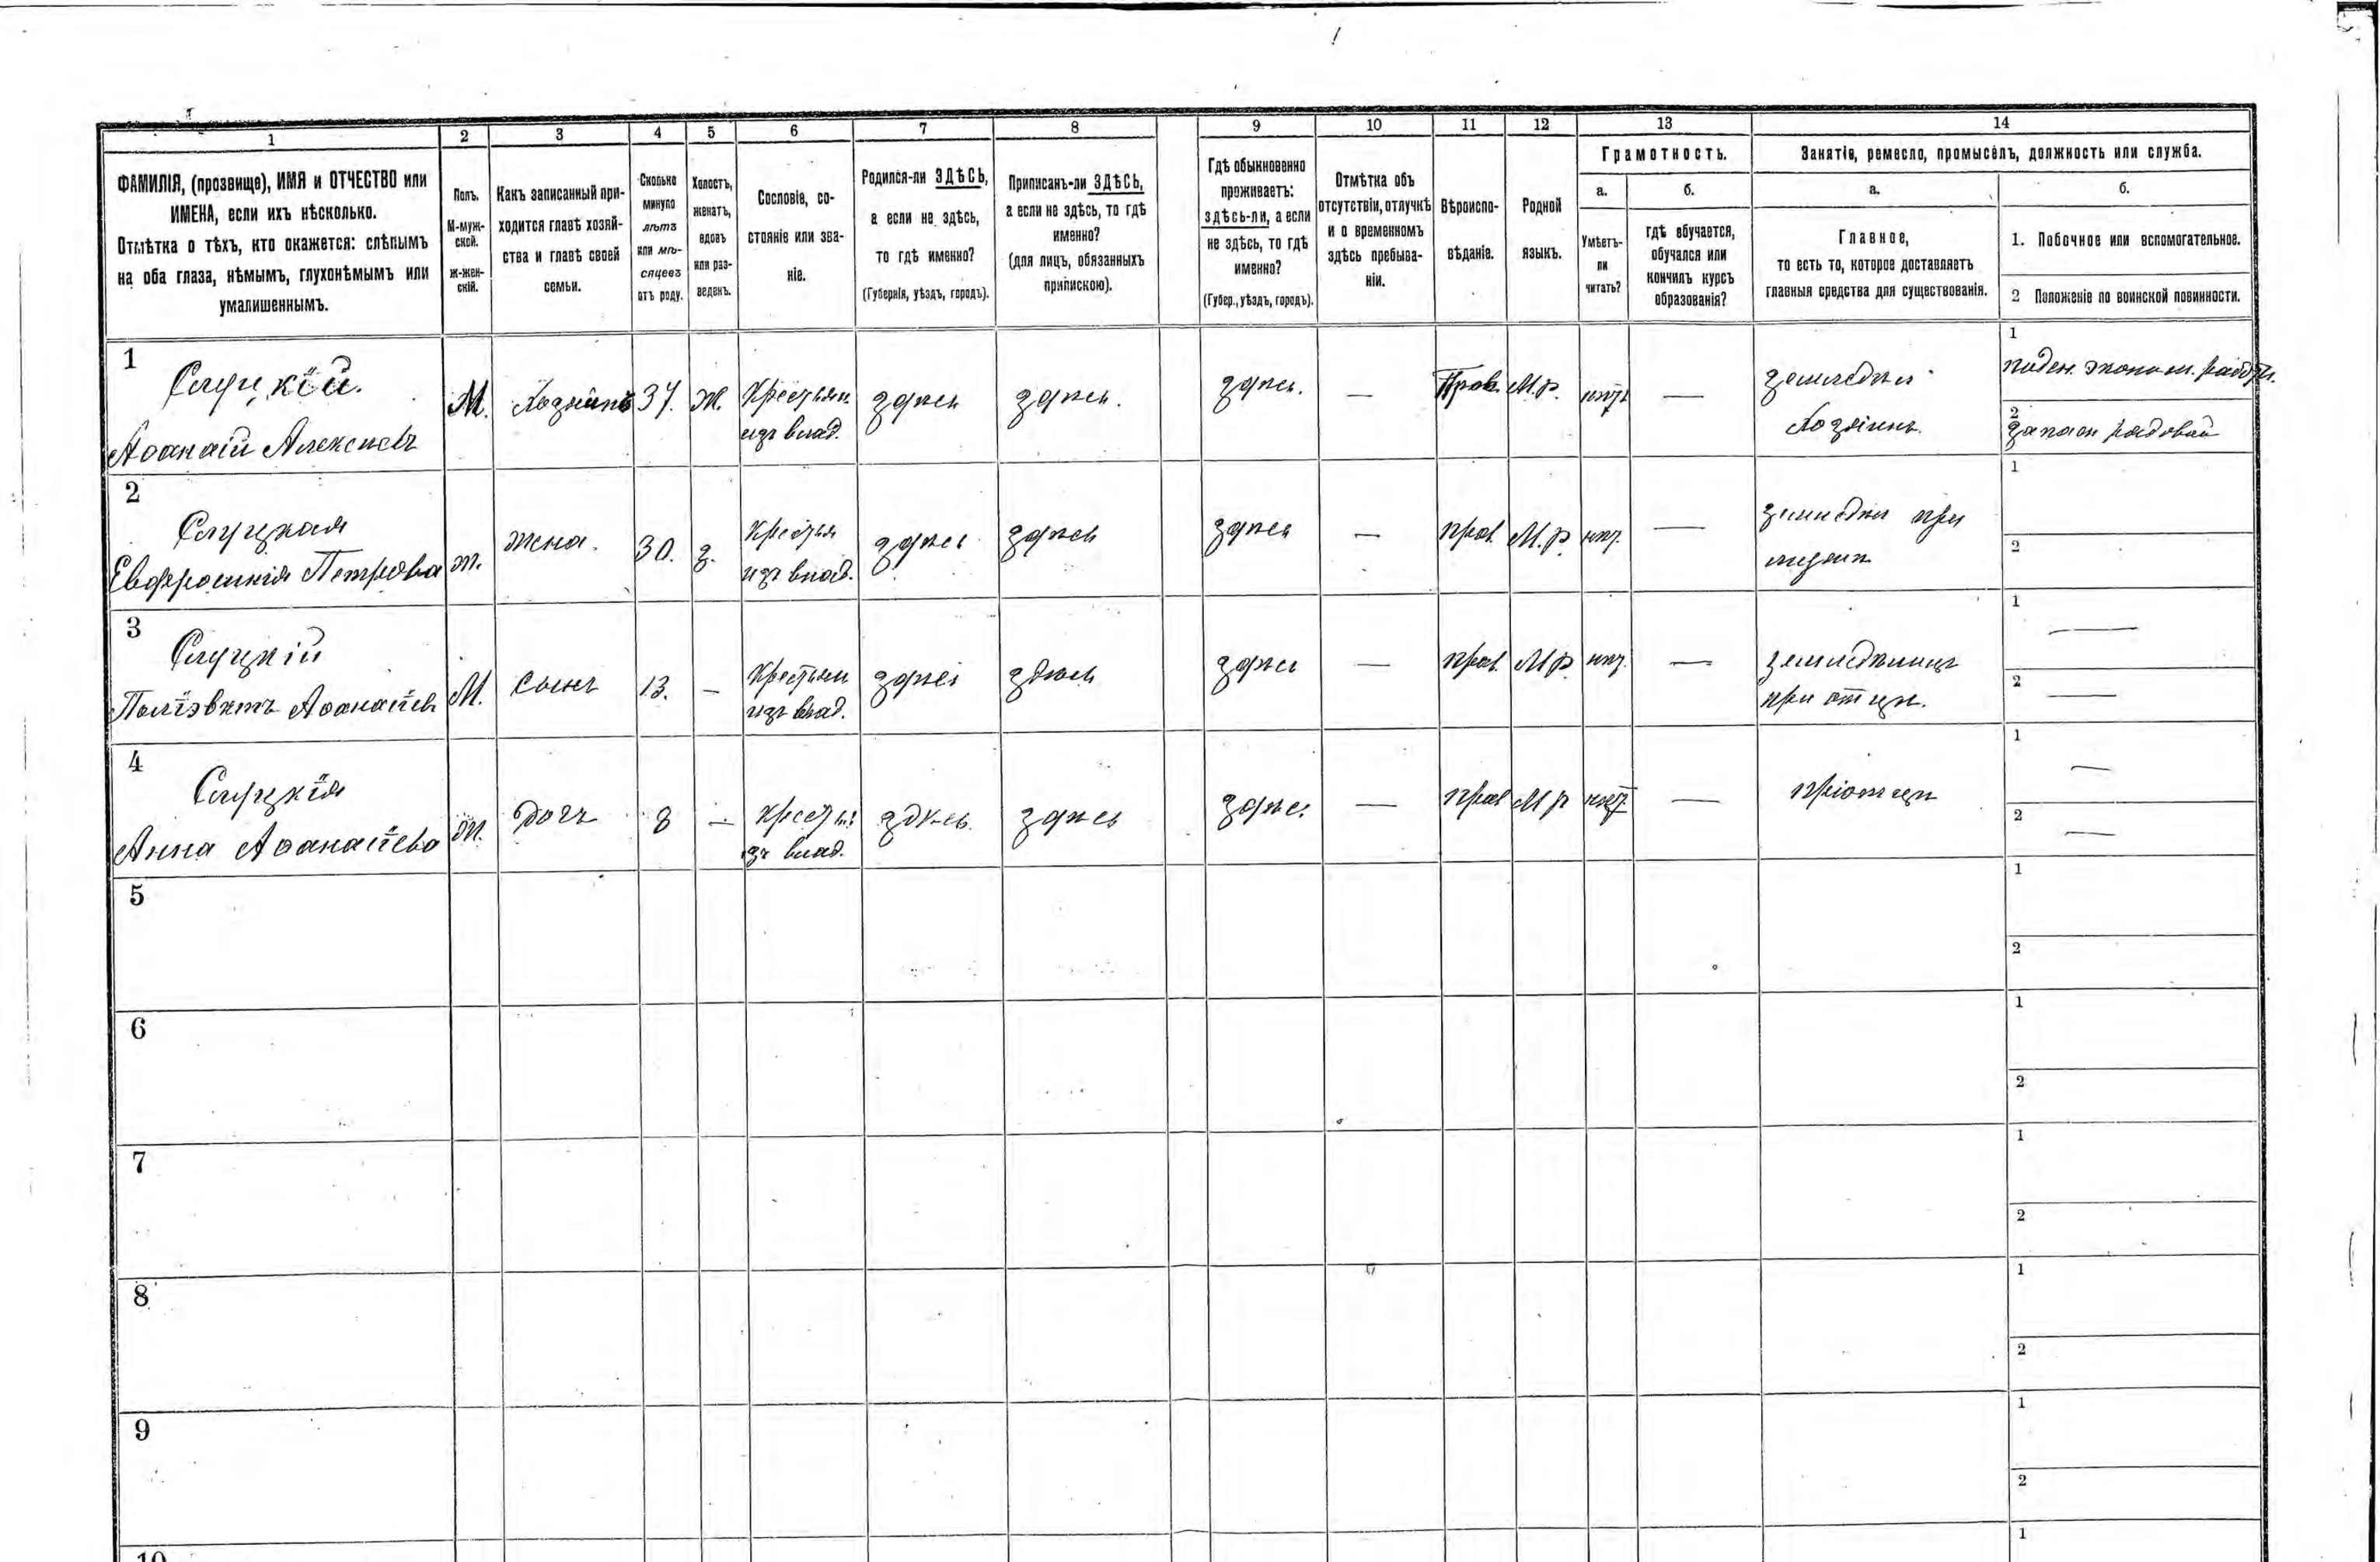 1 2 3 4 5 6 7 8 9 10 11 12 13 14
ФАМИЛІЯ, (прозвище), ИМЯ и ОТЧЕСТВО или
ИМЕНА, если ихъ нѣсколько.
Отмѣтка о тѣхъ, кто окажется: слѣпымъ
на оба глаза, нѣмымъ, глухонѣмымъ или
умалишеннымъ.
Полъ.
М-муж-
ской.
ж-жен-
скій.
Какъ записанный при-
ходится главѣ хозяй-
ства и главѣ своей
семьи.
Сколько
минуло
лѣтъ
или мѣ-
сяцевъ
отъ роду.
Холостъ,
женатъ,
вдовъ
или раз-
веденъ.
Сословіе, со-
стояніе или зва-
ніе.
Родился-ли ЗДѢСЬ,
а если не здѣсь,
то гдѣ именно?
(Губернія, уѣздъ, городъ).
Приписанъ-ли ЗДѢСЬ,
а если не здѣсь, то гдѣ
именно?
(для лицъ, обязанныхъ
припискою).
Гдѣ обыкновенно
проживаетъ:
здѣсь-ли, а если
не здѣсь, то гдѣ
именно?
(Губер., уѣздъ, городъ).
Отмѣтка объ
отсутствіи, отлучкѣ
и о временномъ
здѣсь пребыва-
ніи.
Вѣроиспо-
вѣданіе.
Родной
языкъ.
Грамотность.
а.
Умѣетъ-
ли
читать?
б.
гдѣ обучается,
обучался или
кончилъ курсъ
образованія?
Занятіе, ремесло, промыселъ, должность или служба.
а.
Главное,
то есть то, которое доставляетъ
главныя средства для существованія.
б.
1. Побочное или вспомогательное.
2 Положеніе по воинской повинности.
1
Слуцкій.
Аѳанасій Алексѣевъ
М.
Хозяинъ
37.
Ж.
Крестьян.
изъ влад.
здѣсь
здѣсь.
здѣсь.
—
Прав.
М.р.
нѣтъ
—
Хозяинъ
1
2
2
Слуцкая
Евфросинія Петрова
ж.
жена.
30.
з.
Крестьян
изъ влад.
здѣсь
здѣсь
здѣсь
—
прав.
М.р.
нѣт.
—
при
1
2
3
Слуцкій
Аѳанасіевъ
М.
сынъ
13.
—
Крестьян
изъ влад.
здѣсь
здѣсь
здѣсь
—
прав.
М р
нѣт.
—
при отцѣ.
1 —
2 —
4
Слуцкія
Анна Аѳанасіева
ж.
дочь
8
—
крестьн.
изъ влад.
здѣсь
здѣсь
здѣсь
—
прав
М р
нѣт
—
пріотцѣ
1 —
2 —
5
1
2
6
1
2
7
1
2
8
1
2
9
1
2
10
1